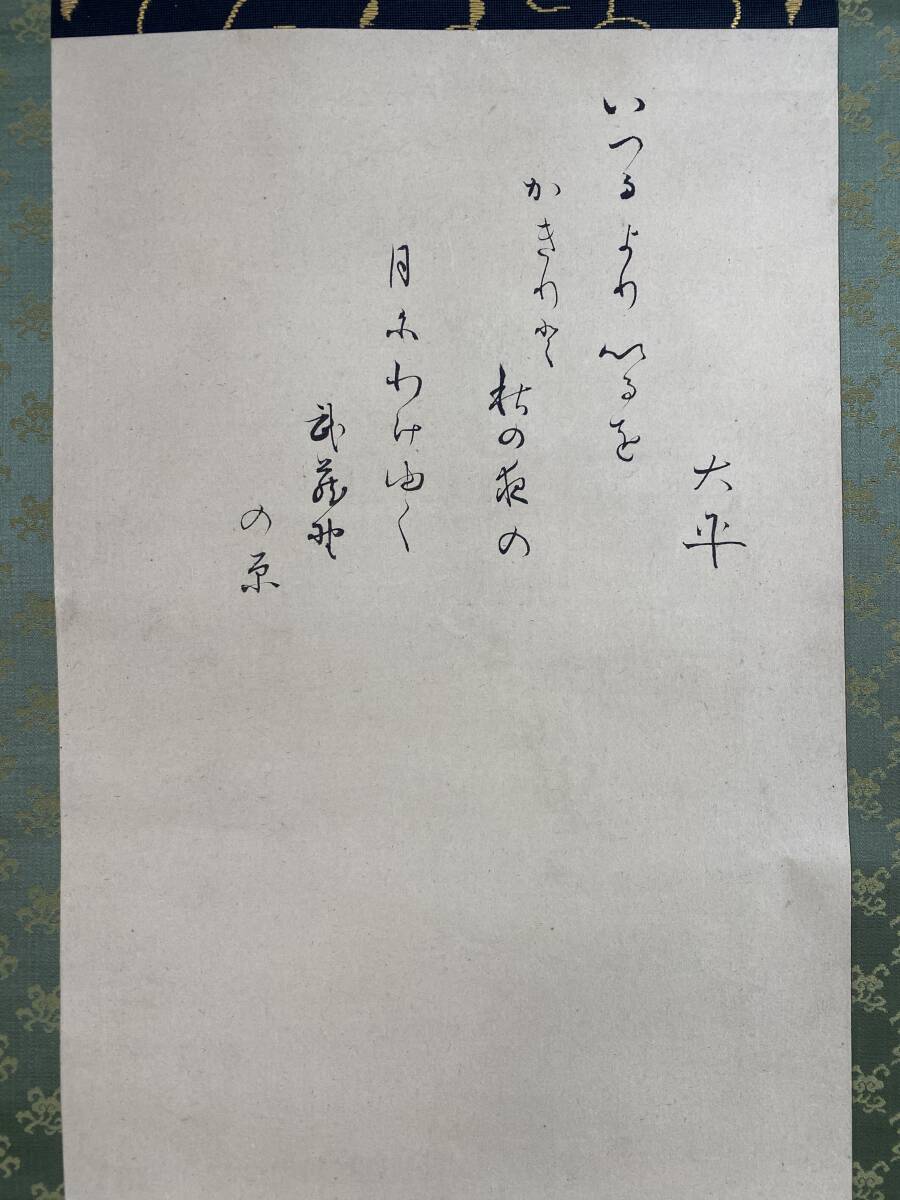 大平
いつるより いるを
かきりと
秋の夜の
月にわけゆく
武蔵野
の原